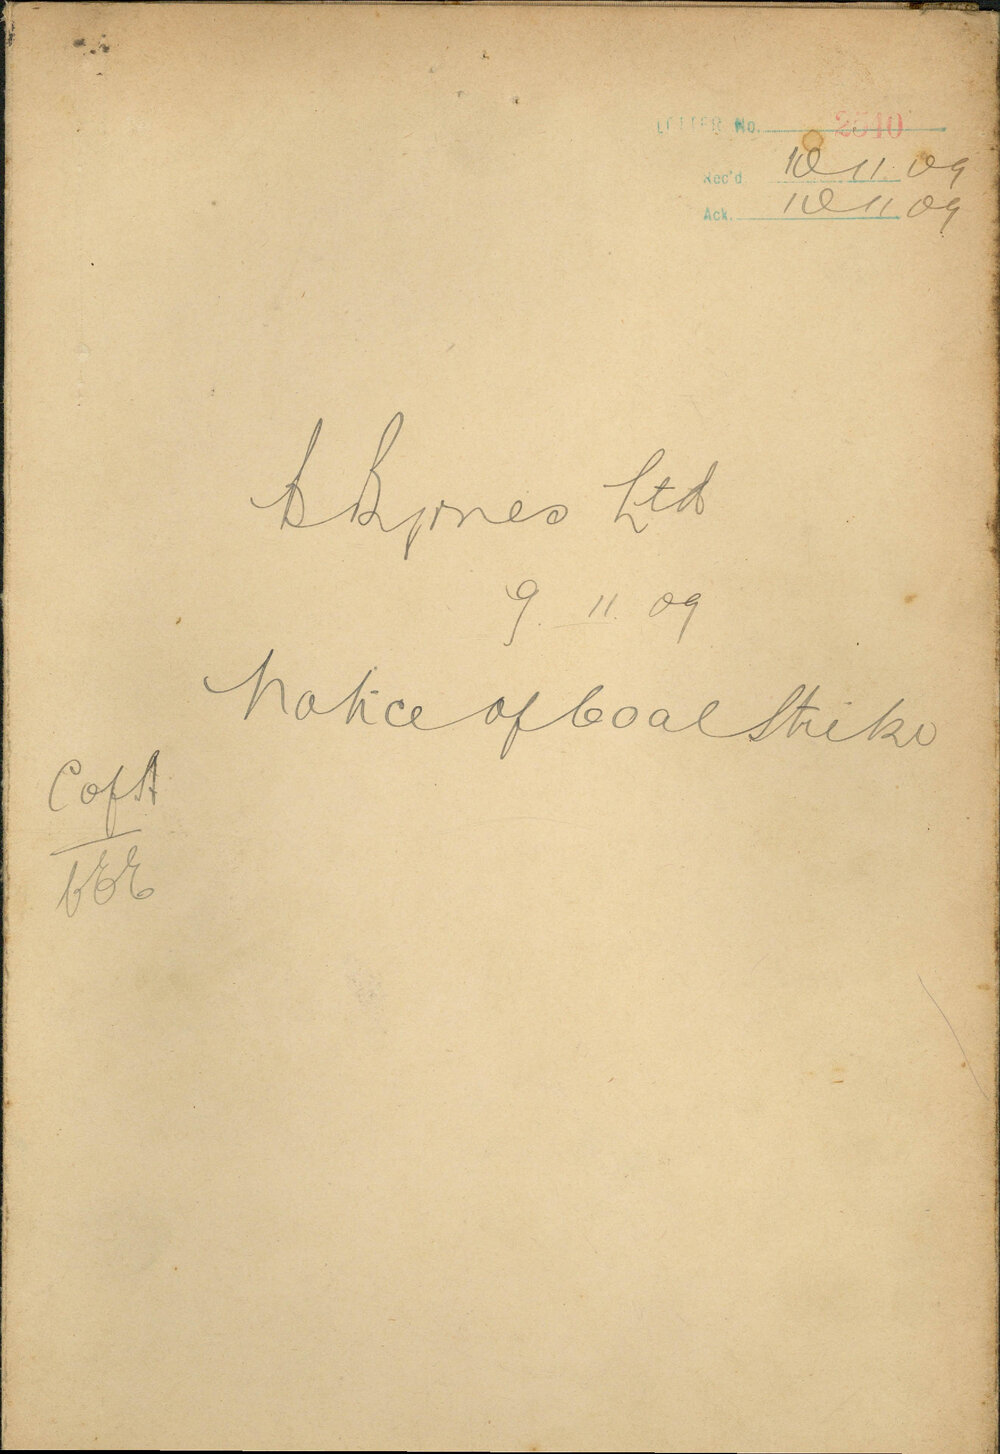 LETTER No. 2540
Rec'd 10 11 09
Ack. 10 11 09
Byrnes Ltd
9. 11. 09
Notice of Coal Strike
C of A